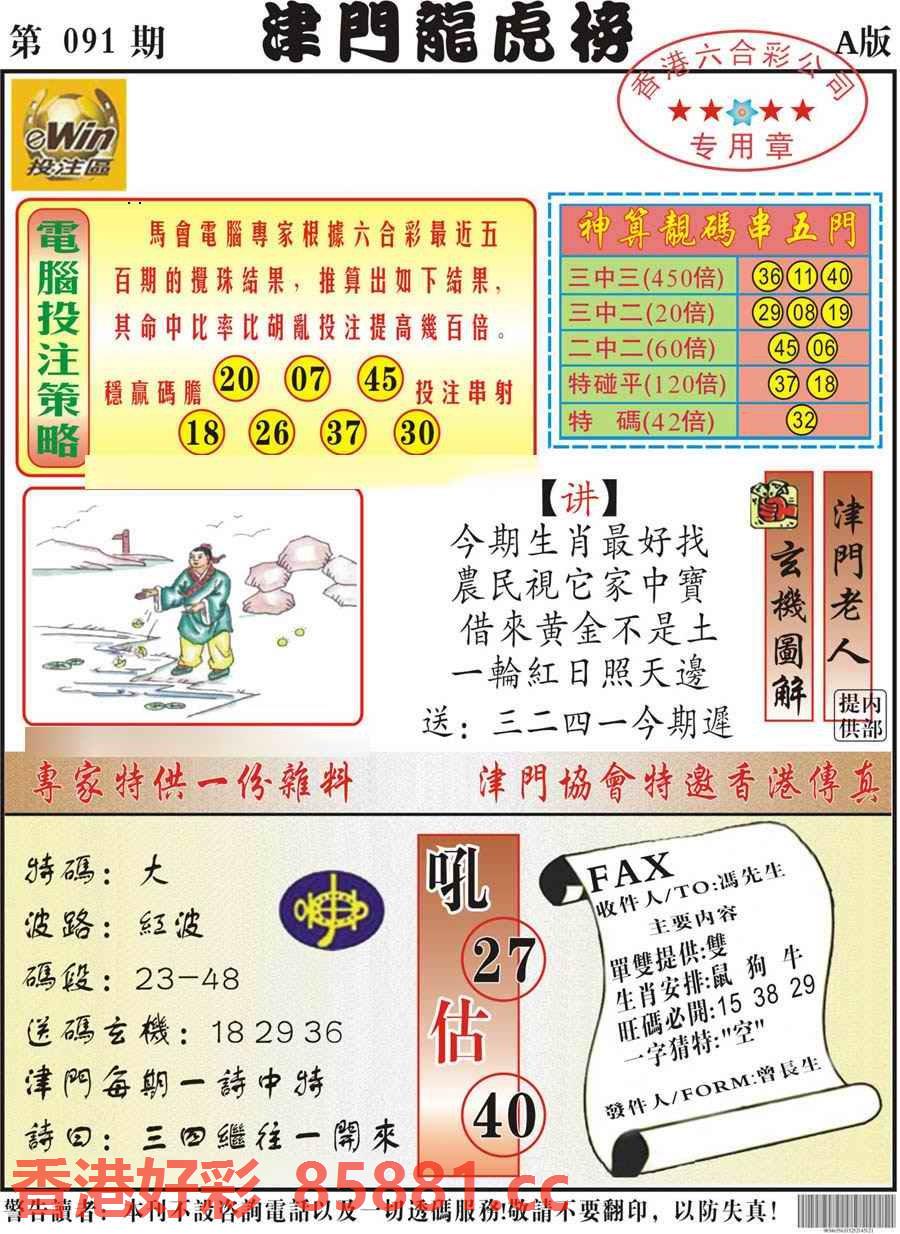 第 091 期
津門龍虎榜
A版
香港六合彩公司
专用章
eWin
投注區
電腦投注策略
馬會電腦專家根據六合彩最近五
百期的攪珠結果，推算出如下結果，
其命中比率比胡亂投注提高幾百倍。
穩贏碼膽 20 07 45 投注串射
18 26 37 30
神算靚碼串五門
三中三(450倍) 36 11 40
三中二(20倍) 29 08 19
二中二(60倍) 45 06
特碰平(120倍) 37 18
特 碼(42倍) 32
【讲】
今期生肖最好找
農民視它家中寶
借來黄金不是土
一輪紅日照天邊
送：三二四一今期遲
玄機圖解
津門老人
内部提供
專家特供一份雜料
津門協會特邀香港傳真
特碼：大
波路：紅波
碼段：23-48
送碼玄機：18 29 36
津門每期一詩中特
詩曰：三四繼往一開來
吼
27
估
40
FAX
收件人/TO:馮先生
主要内容
單雙提供:雙
生肖安排:鼠 狗 牛
旺碼必開:15 38 29
一字猜特:"空"
發件人/FORM:曾長生
香港好彩 85881.cc
警告讀者：本刊不設咨詢電話以及一切透碼服務!敬請不要翻印，以防失真!